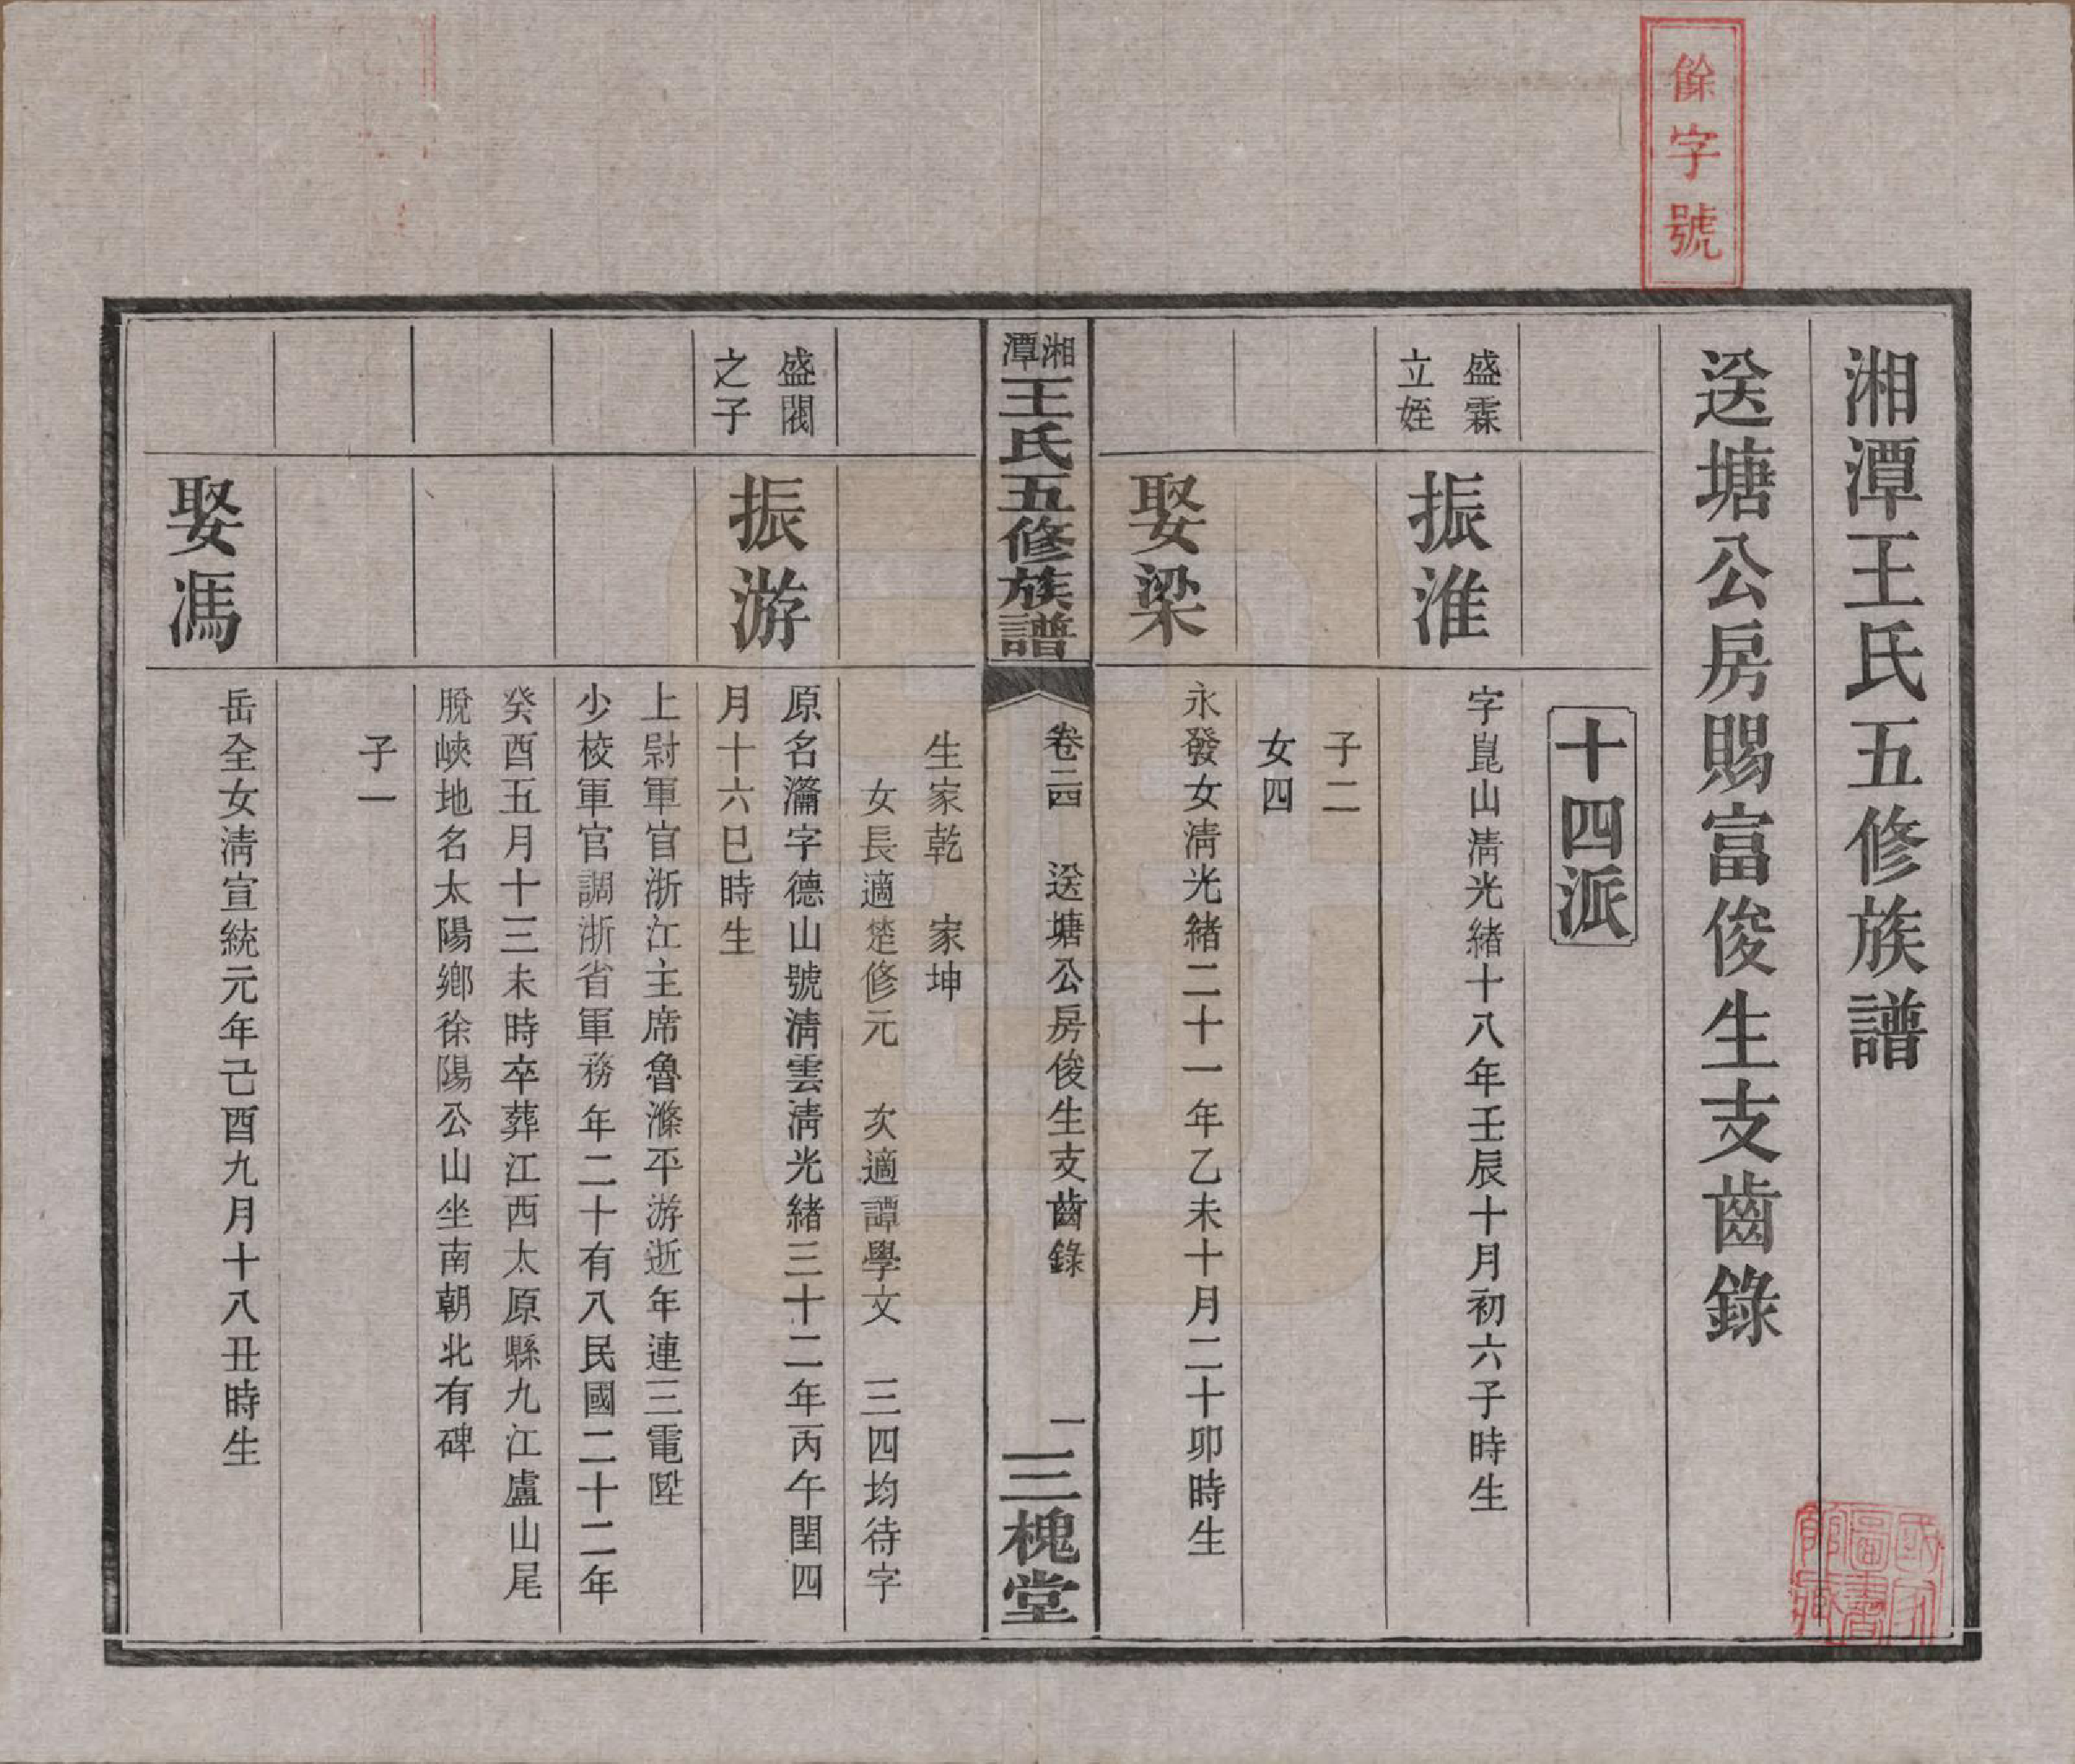 餘字號
湘潭王氏五修族譜
送塘公房賜富俊生支齒錄
十四派
盛霖
立姪
振淮
字崑山淸光緒十八年壬辰十月初六子時生
子二
女四
娶梁
永發女淸光緒二十一年乙未十月二十卯時生
湘潭
王氏五修族譜
卷二四　送塘公房俊生支齒錄
一
三槐堂
生家乾　家坤
女長適楚修元　次適譚學文　三四均待字
盛閥
之子
振游
原名灊字德山號淸雲淸光緒三十二年丙午閏四
月十六巳時生
上尉軍官浙江主席魯滌平游逝年連三電陞
少校軍官調浙省軍務年二十有八民國二十二年
癸酉五月十三未時卒葬江西太原縣九江盧山尾
脫峽地名太陽鄉徐陽公山坐南朝北有碑
子一
娶馮
岳全女淸宣統元年己酉九月十八丑時生
國家圖書館藏